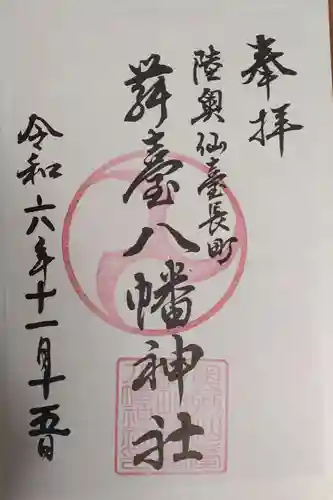 奉拝
陸奥仙臺長町
舞臺八幡神社
令和六年十一月十五日